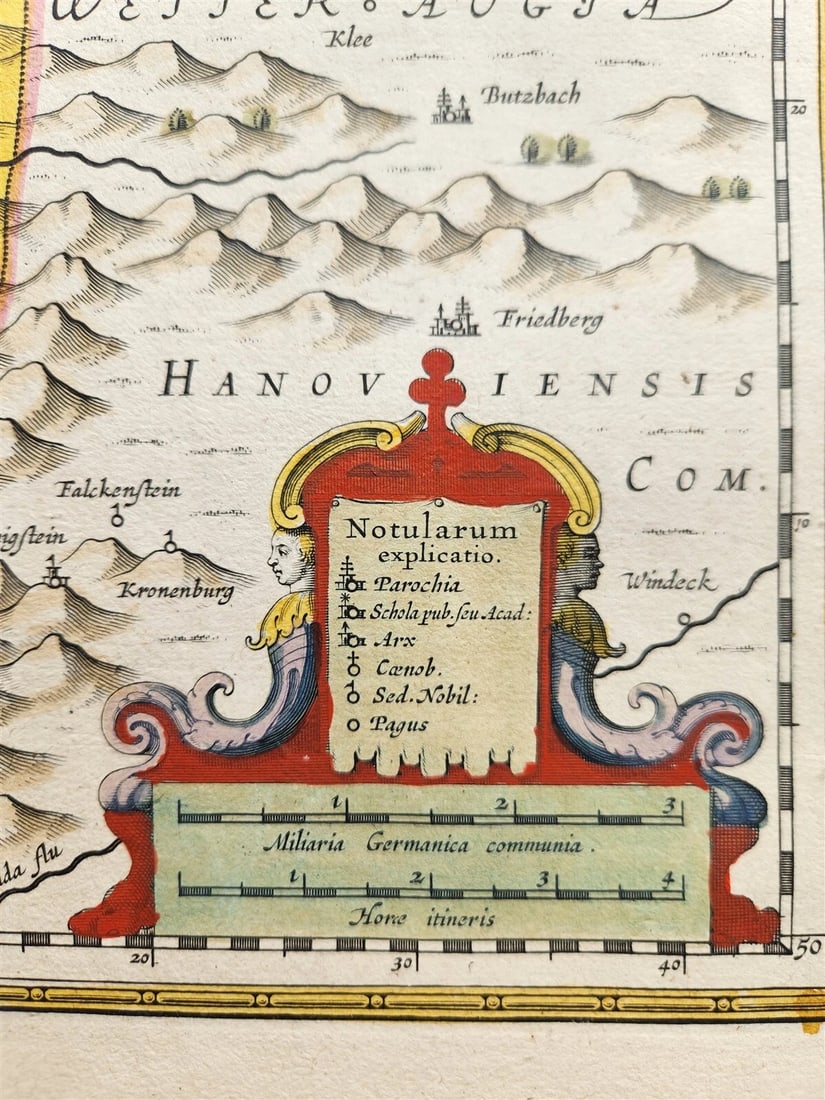 WETTER AUGIA
Klee
Butzbach
20
Friedberg
HANOVIENSIS
COM.
Falckenstein
10
Kronenburg
Windeck
Notularum
explicatio.
Parochia
Schola pub. seu Acad:
Arx
Cœnob.
Sed. Nobil:
Pagus
1 2 3
Miliaria Germanica communia.
1 2 3 4
Horæ itineris
flu
20 30 40 50